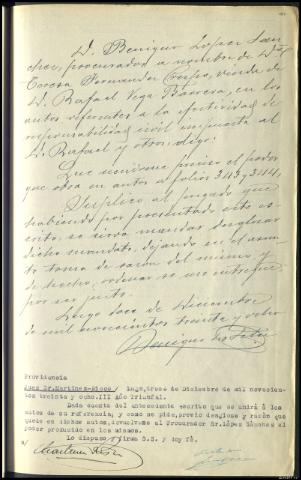 D. Benigno López Sán-
chez, procurador a nombre de Dª
Teresa Fernandez Crespo, viuda de
D. Rafael Vega Barrera, en los
autos referentes a la efectividad de
responsabilidad civil impuesta al
D. Rafael y otros, digo:
Que me es preciso el poder
que obra en autos a folios 343 y 344,
Suplico al Juzgado que
habiendo por presentado este es-
crito, se sirva mandar desglosar
dicho mandato, dejando en el asun-
to toma de razón del mismo, y
de hecho, ordenar se me entregue,
por ser justo.
Lugo doce de Diciembre
de mil novecientos treinta y ocho
Benigno López
Providencia
Juez Sr. Martinez-Risco/ Lugo, trece de Diciembre de mil novecien-
tos treinta y ocho. III Año Triunfal.
Dada cuenta del antecedente escrito que se unirá á los
autos de su referencia, y como se pide, previo desglose y razón que
quede en dichos autos, devuelvase al Procurador Sr. López Sánchez el
poder producido en los mismos.
Lo dispuso y firma S.S. y doy fé.
Martinez Risco